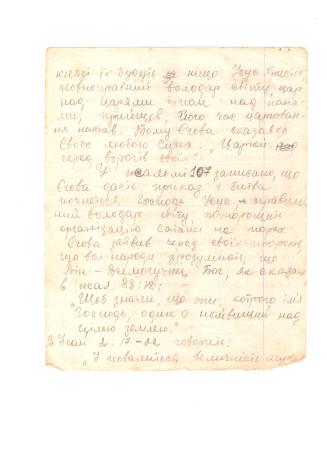 князі то будуть ніщо. Ісус Христос
повноправний володар світу, цар
над царями і пан над пана-
ми, прийшов, Його час царюван-
ня настав. Тому Єгова сказав до
Свого любого Сина: "Царюй
серед ворогів своїх".
У псальмі 107 записано, що
Єгова дасть приказ і битва
почнеться. Господь Ісус, правиль-
ний володар світу, поторощить
організацію сатани на порох.
Єгова заявив через своїх пророків,
що всі народи зрозуміють, що
Він – Всемогучий Бог, як сказано
в псал. 83:18:
"Щоб знали, що ти, котрого ім'я
Господь, один є найвищий над
цілою землею."
В Ісаї 2:17-22 говорить:
"І повалиться величність